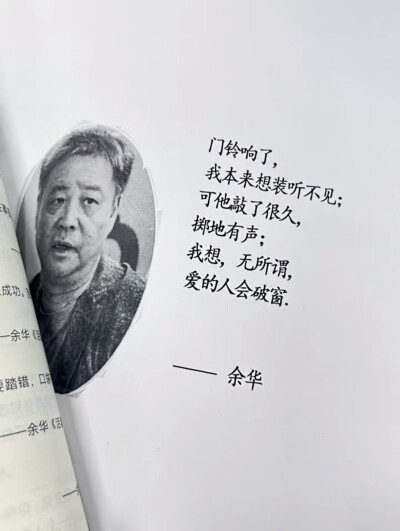 门铃响了,
我本来想装听不见;
可他敲了很久,
掷地有声;
我想，无所谓,
爱的人会破窗.
—— 余华
成功。
——余华《活
要踏错，口
——余华《活